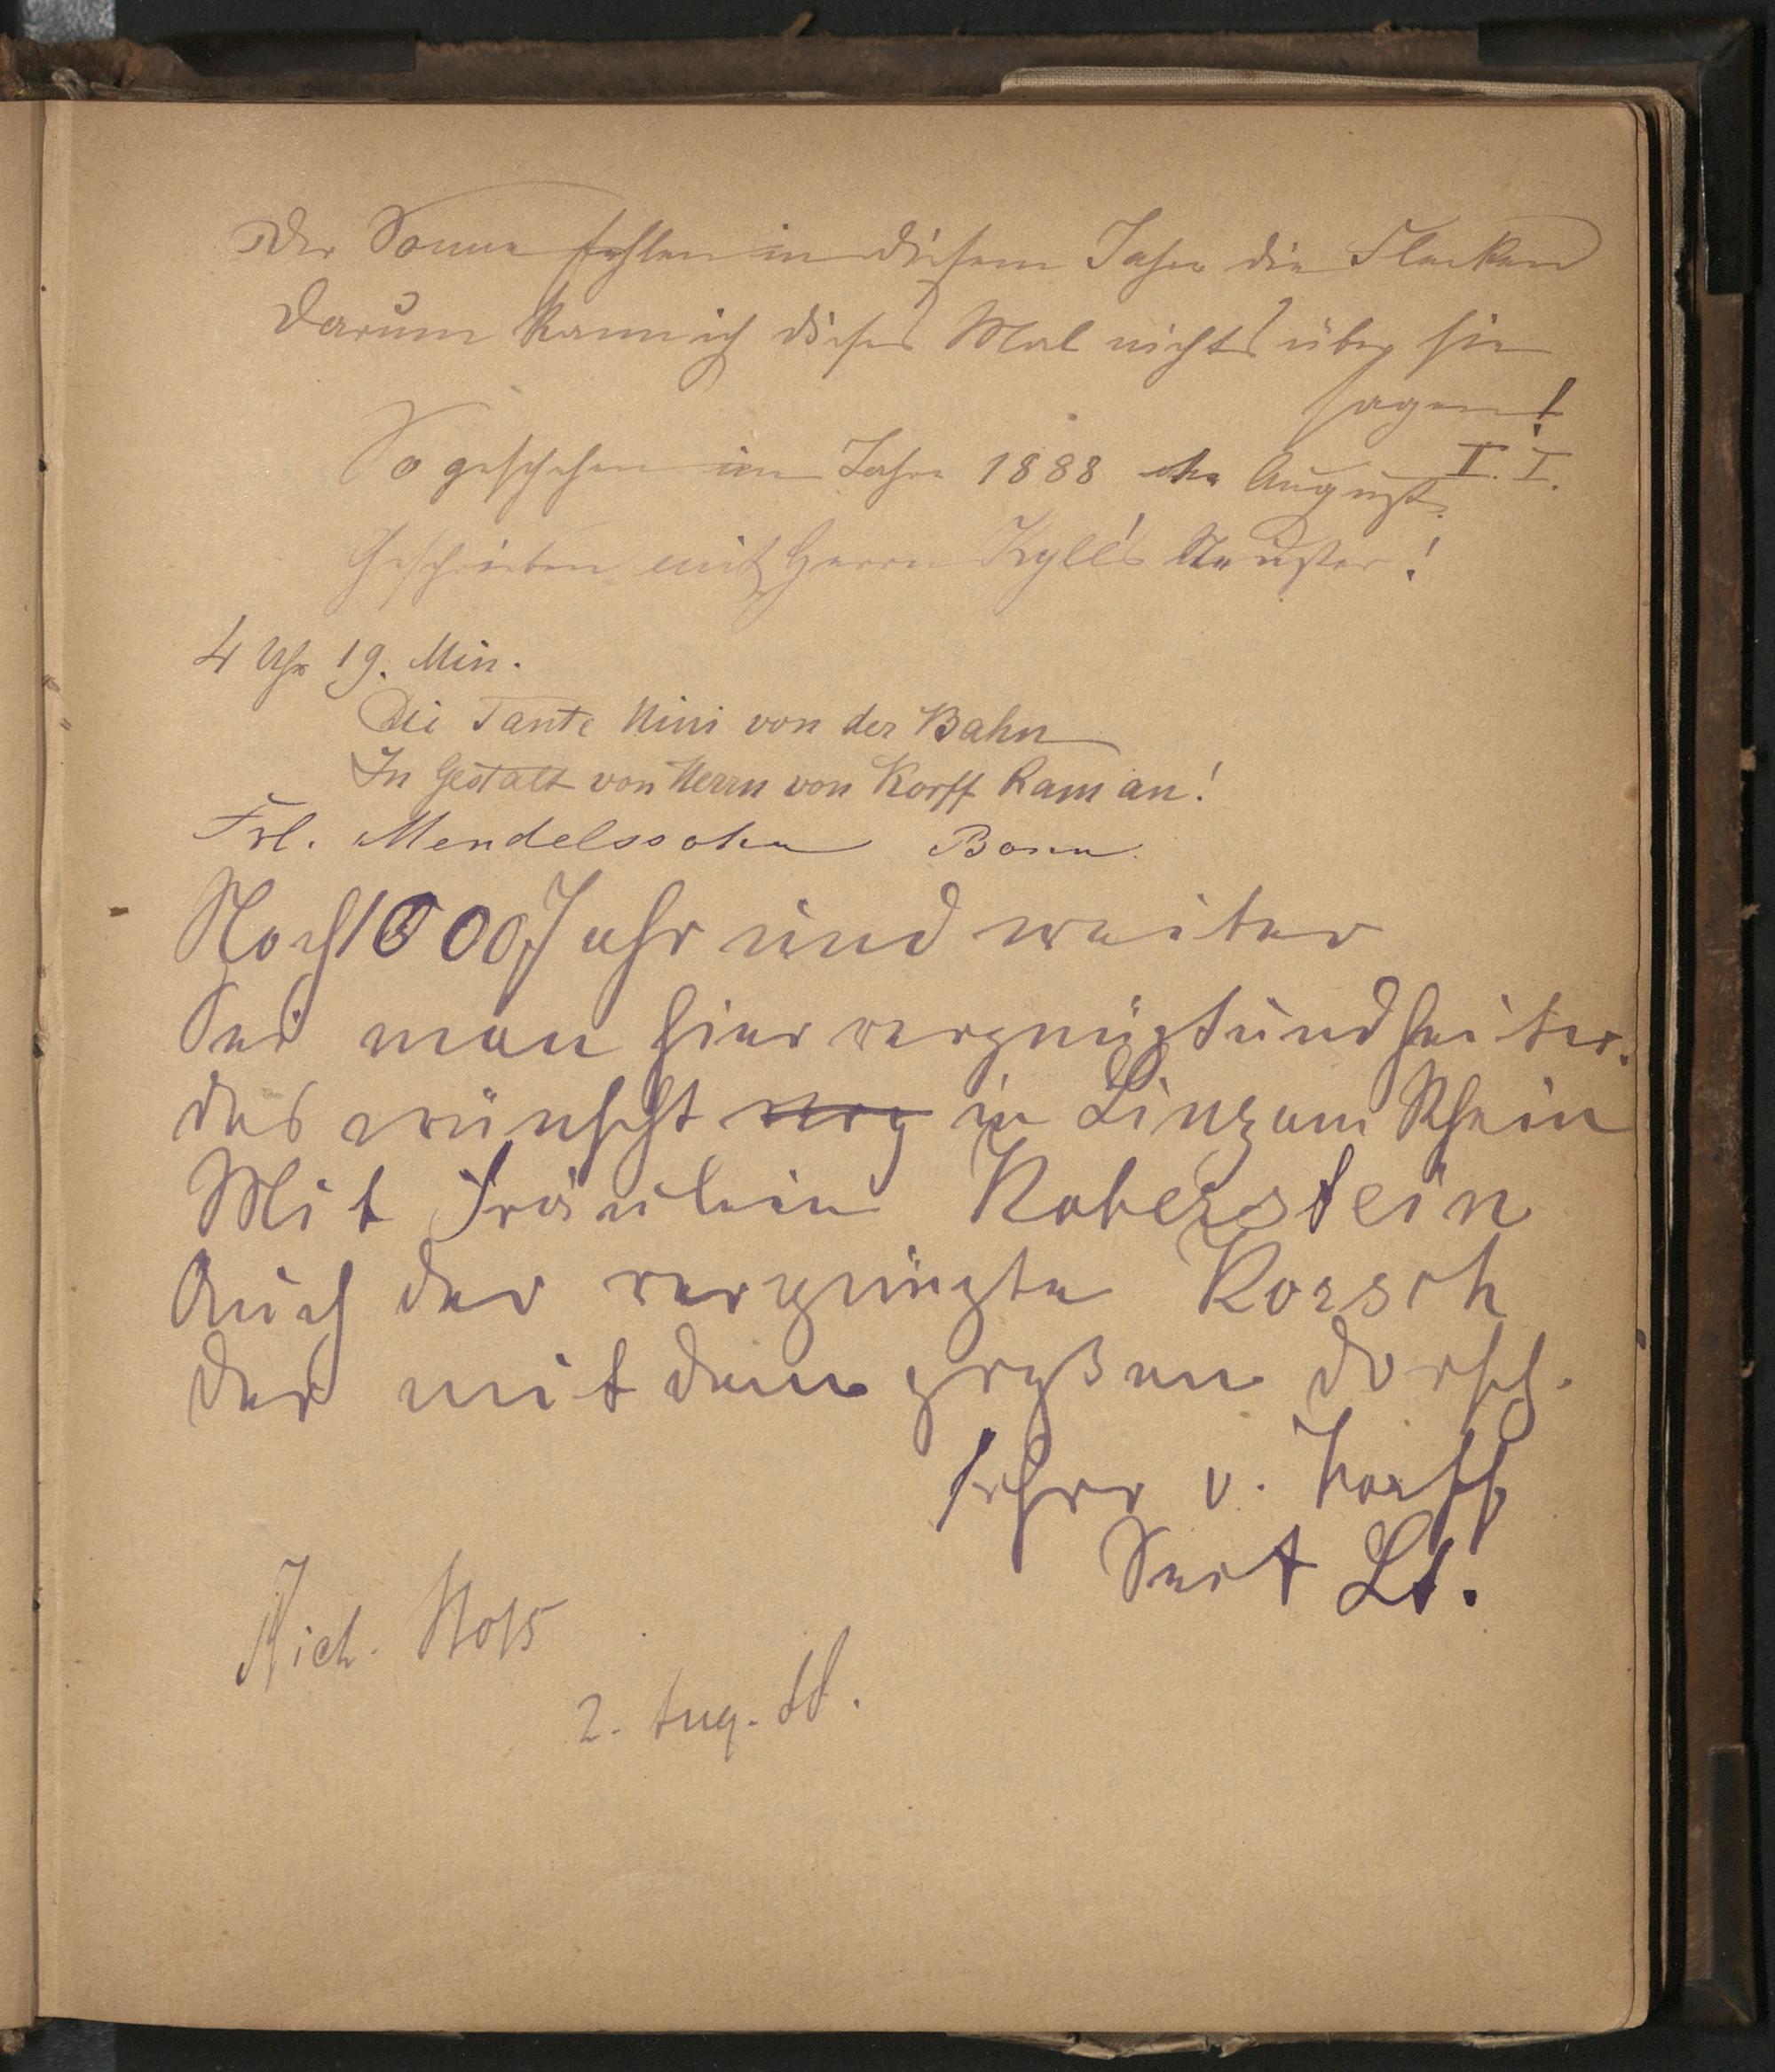 Der Sonne fehlen in diesem Jahre die Flecken
Darum kann ich dieses Mal nichts über sie
sagen!
I. I.
So geschehen im Jahre 1888 August.
Geschrieben mit Herrn Kyll's
4 Uhr 19. Min.
Die Tante Nini von der Bahn
In Gestalt von Herrn von Korff kam an!
Frl. Mendelssohn Bonn.
Noch 1000 Jahr und weiter
Sei man hier vergnügt und heiter.
das wünscht verg in Linz am Rhein
Mit Fräulein Koberstein
Auch der vergnügte Korsch
der mit dem großen Dorsch.
Frhrr v. Korff
Sect Lt.
2. Aug. 88.